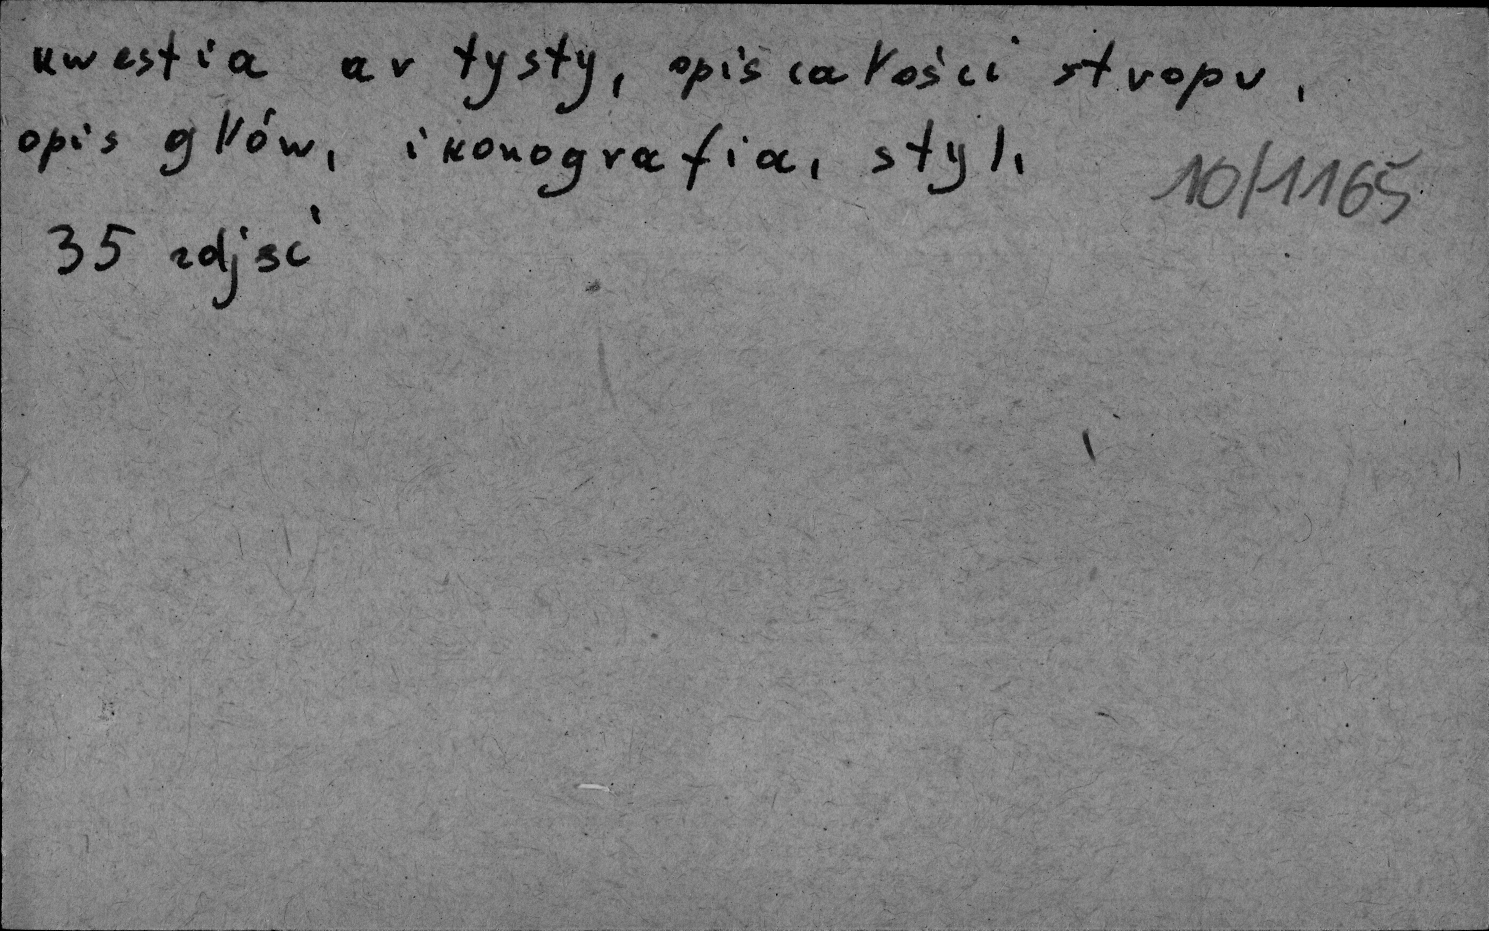 kwestia artysty, opis całości stropu,
opis głów, ikonografia, styl,
10/1165
35 zdjęć